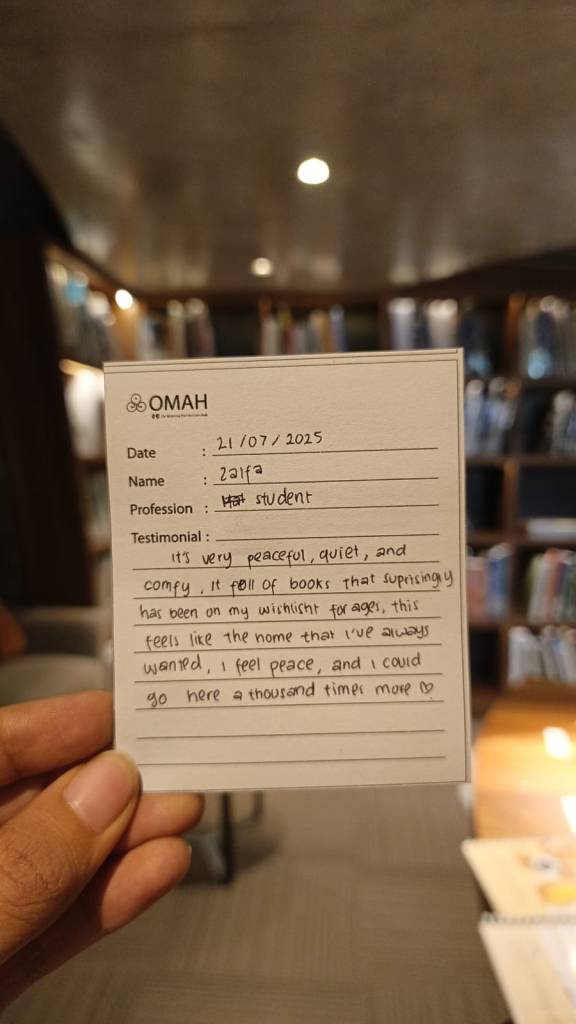 OMAH
Date : 21/07/2025
Name : Zalfa
Profession : student
Testimonial :
It's very peaceful, quiet, and
comfy, it full of books that suprisingly
has been on my wishlisht for ages, this
feels like the home that I've always
wanted, I feel peace, and I could
go here a thousand times more ♡